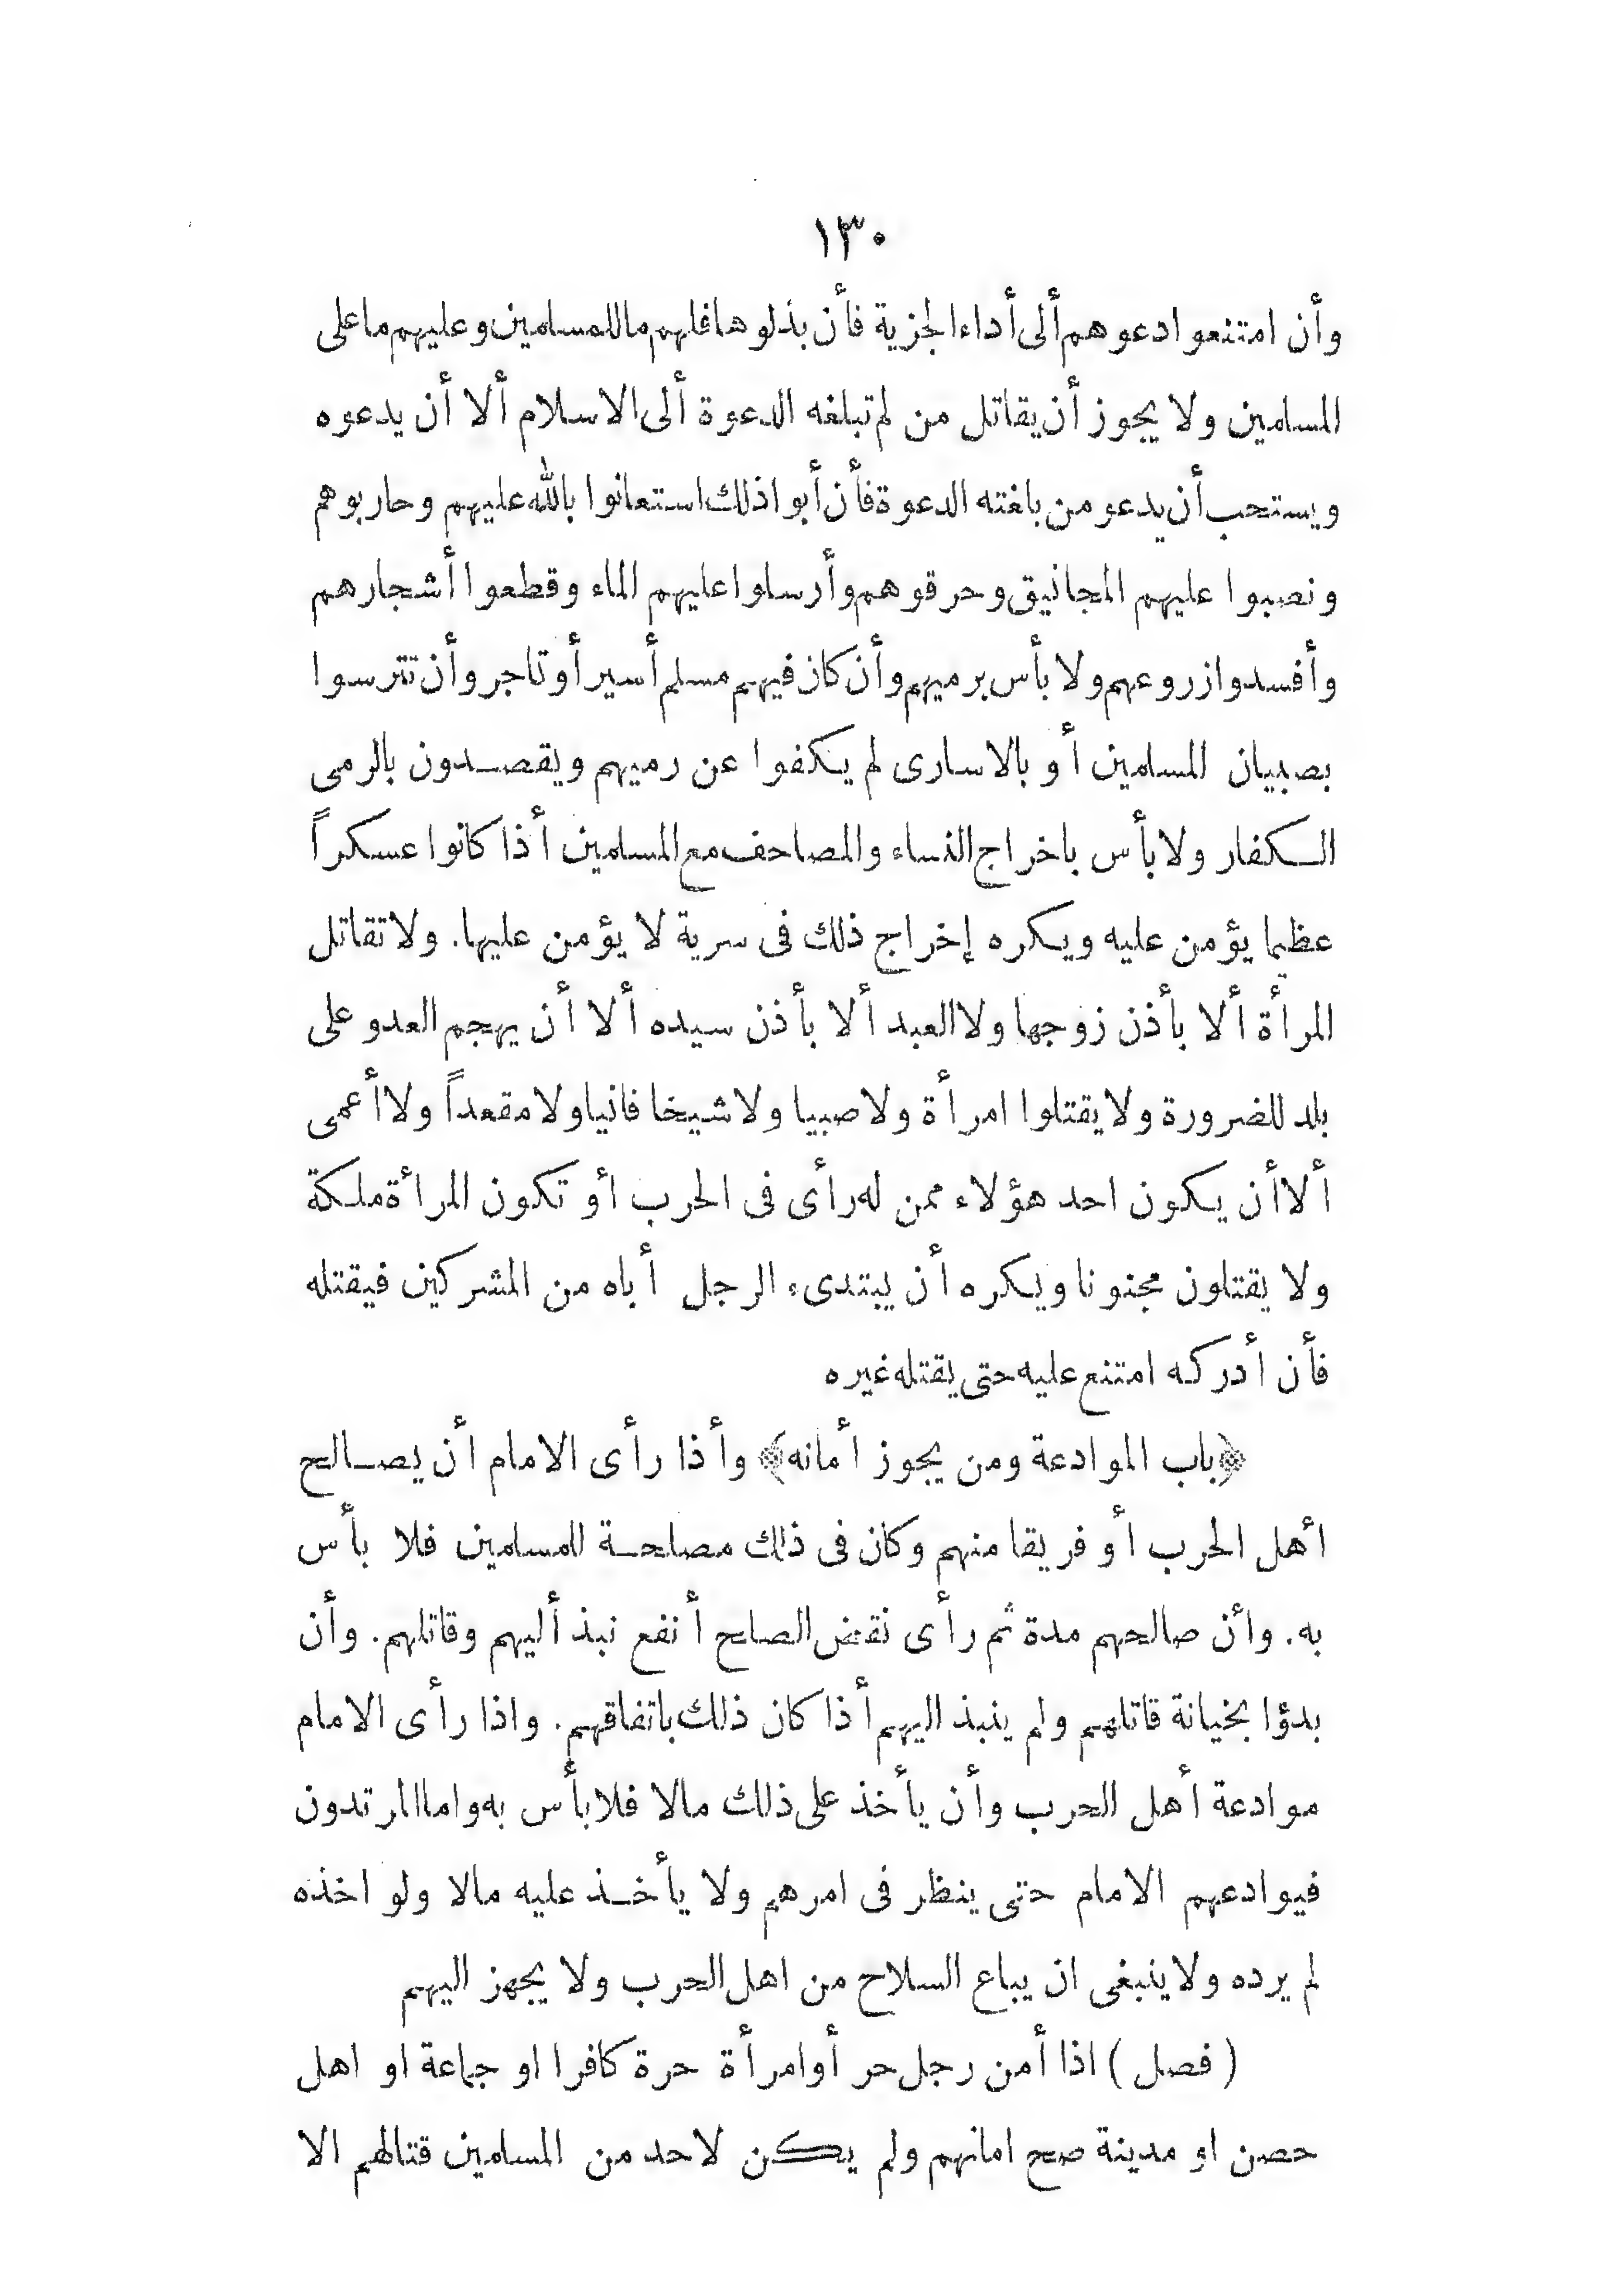 ١٣٠
وأن امتنعوا دعوهم ألى أداء الجزية فأن بذلوها فلهم ما للمسلمين وعليهم ما على
المسلمين ولا يجوز أن يقاتل من لم تبلغه الدعوة ألى الاسلام ألا أن يدعوه
ويستحب أن يدعو من بلغته الدعوة فأن أبوا ذلك استعانوا بالله عليهم وحاربوهم
ونصبوا عليهم المجانيق وحرقوهم وأرسلوا عليهم الماء وقطعوا أشجارهم
وأفسدوا زروعهم ولا بأس برميهم وأن كان فيهم مسلم أسير أو تاجر وأن تترسوا
بصبيان المسلمين أو بالاسارى لم يكفوا عن رميهم ويقصدون بالرمى
الكفار ولا بأس باخراج النساء والمصاحف مع المسلمين أذا كانوا عسكراً
عظيما يؤمن عليه ويكره إخراج ذلك فى سرية لا يؤمن عليها. ولا تقاتل
المرأة ألا بأذن زوجها ولا العبد ألا بأذن سيده ألا أن يهجم العدو على
بلد للضرورة ولا يقتلوا امرأة ولا صبيا ولا شيخا فانيا ولا مقعداً ولا أعمى
ألا أن يكون احد هؤلاء ممن له رأى فى الحرب أو تكون المرأة ملكة
ولا يقتلون مجنونا ويكره أن يبتدىء الرجل أباه من المشركين فيقتله
فأن أدركه امتنع عليه حتى يقتله غيره
﴿باب الموادعة ومن يجوز أمانه﴾ وأذا رأى الامام أن يصالح
أهل الحرب أو فريقا منهم وكان فى ذلك مصلحة للمسلمين فلا بأس
به. وأن صالحهم مدة ثم رأى نقض الصلح أنفع نبذ أليهم وقاتلهم. وأن
بدؤا بخيانة قاتلهم ولم ينبذ اليهم أذا كان ذلك باتفاقهم. واذا رأى الامام
موادعة أهل الحرب وأن يأخذ على ذلك مالا فلا بأس به واما المرتدون
فيوادعهم الامام حتى ينظر فى امرهم ولا يأخذ عليه مالا ولو اخذه
لم يرده ولا ينبغى ان يباع السلاح من اهل الحرب ولا يجهز اليهم
( فصل ) اذا أمن رجل حر أو امرأة حرة كافرا او جماعة او اهل
حصن او مدينة صح امانهم ولم يكن لاحد من المسلمين قتالهم الا